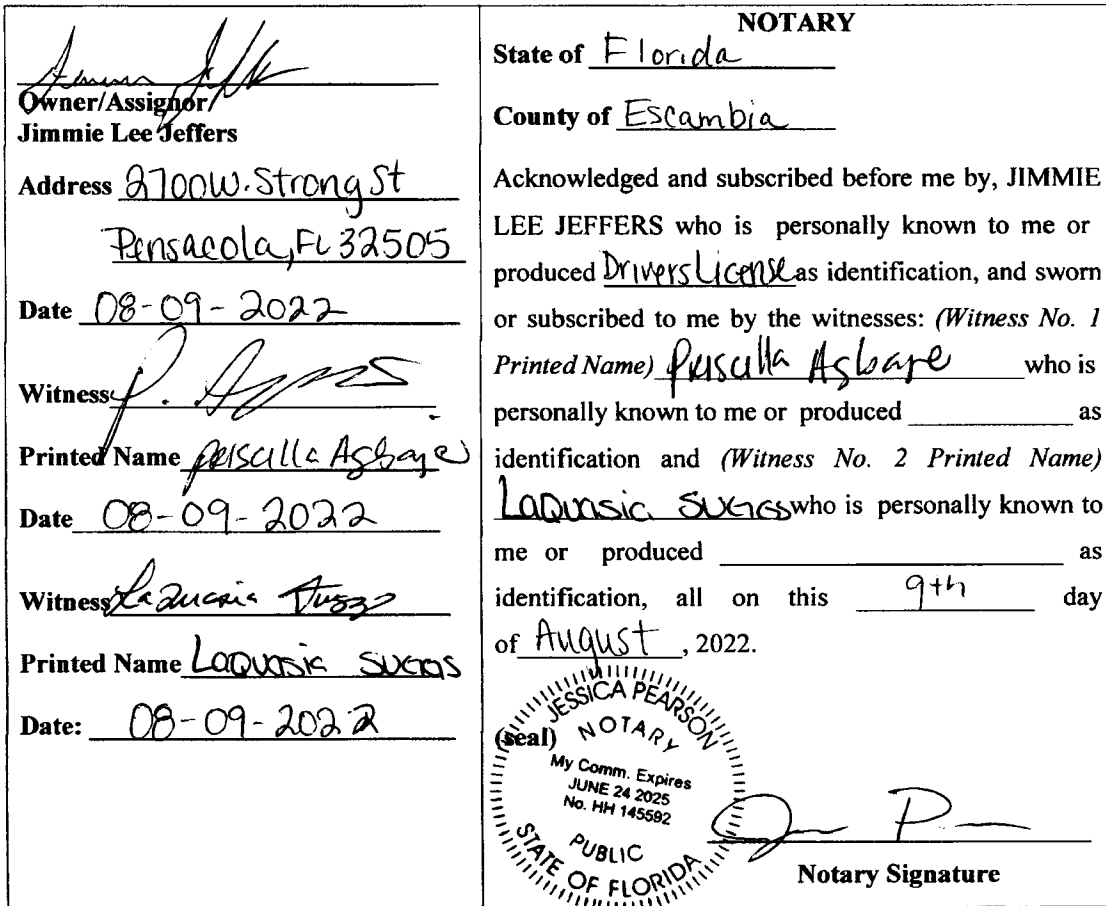 Owner/Assignor
Jimmie Lee Jeffers
Address 2700 W. Strong St
Pensacola, FL 32505
Date 08-09-2022
Witness P.
Printed Name Priscilla Agbaje
Date 08-09-2022
Witness LaQuasia Suggs
Printed Name LaQuasia Suggs
Date: 08-09-2022
NOTARY
State of Florida
County of Escambia
Acknowledged and subscribed before me by, JIMMIE
LEE JEFFERS who is personally known to me or
produced Drivers License as identification, and sworn
or subscribed to me by the witnesses: (Witness No. 1
Printed Name) Priscilla Agbaje who is
personally known to me or produced ____________ as
identification and (Witness No. 2 Printed Name)
LaQuasia Suggs who is personally known to
me or produced ____________ as
identification, all on this 9th day
of August, 2022.
(seal)
JESSICA PEARSON
NOTARY
My Comm. Expires
JUNE 24 2025
No. HH 145592
PUBLIC
STATE OF FLORIDA
Notary Signature